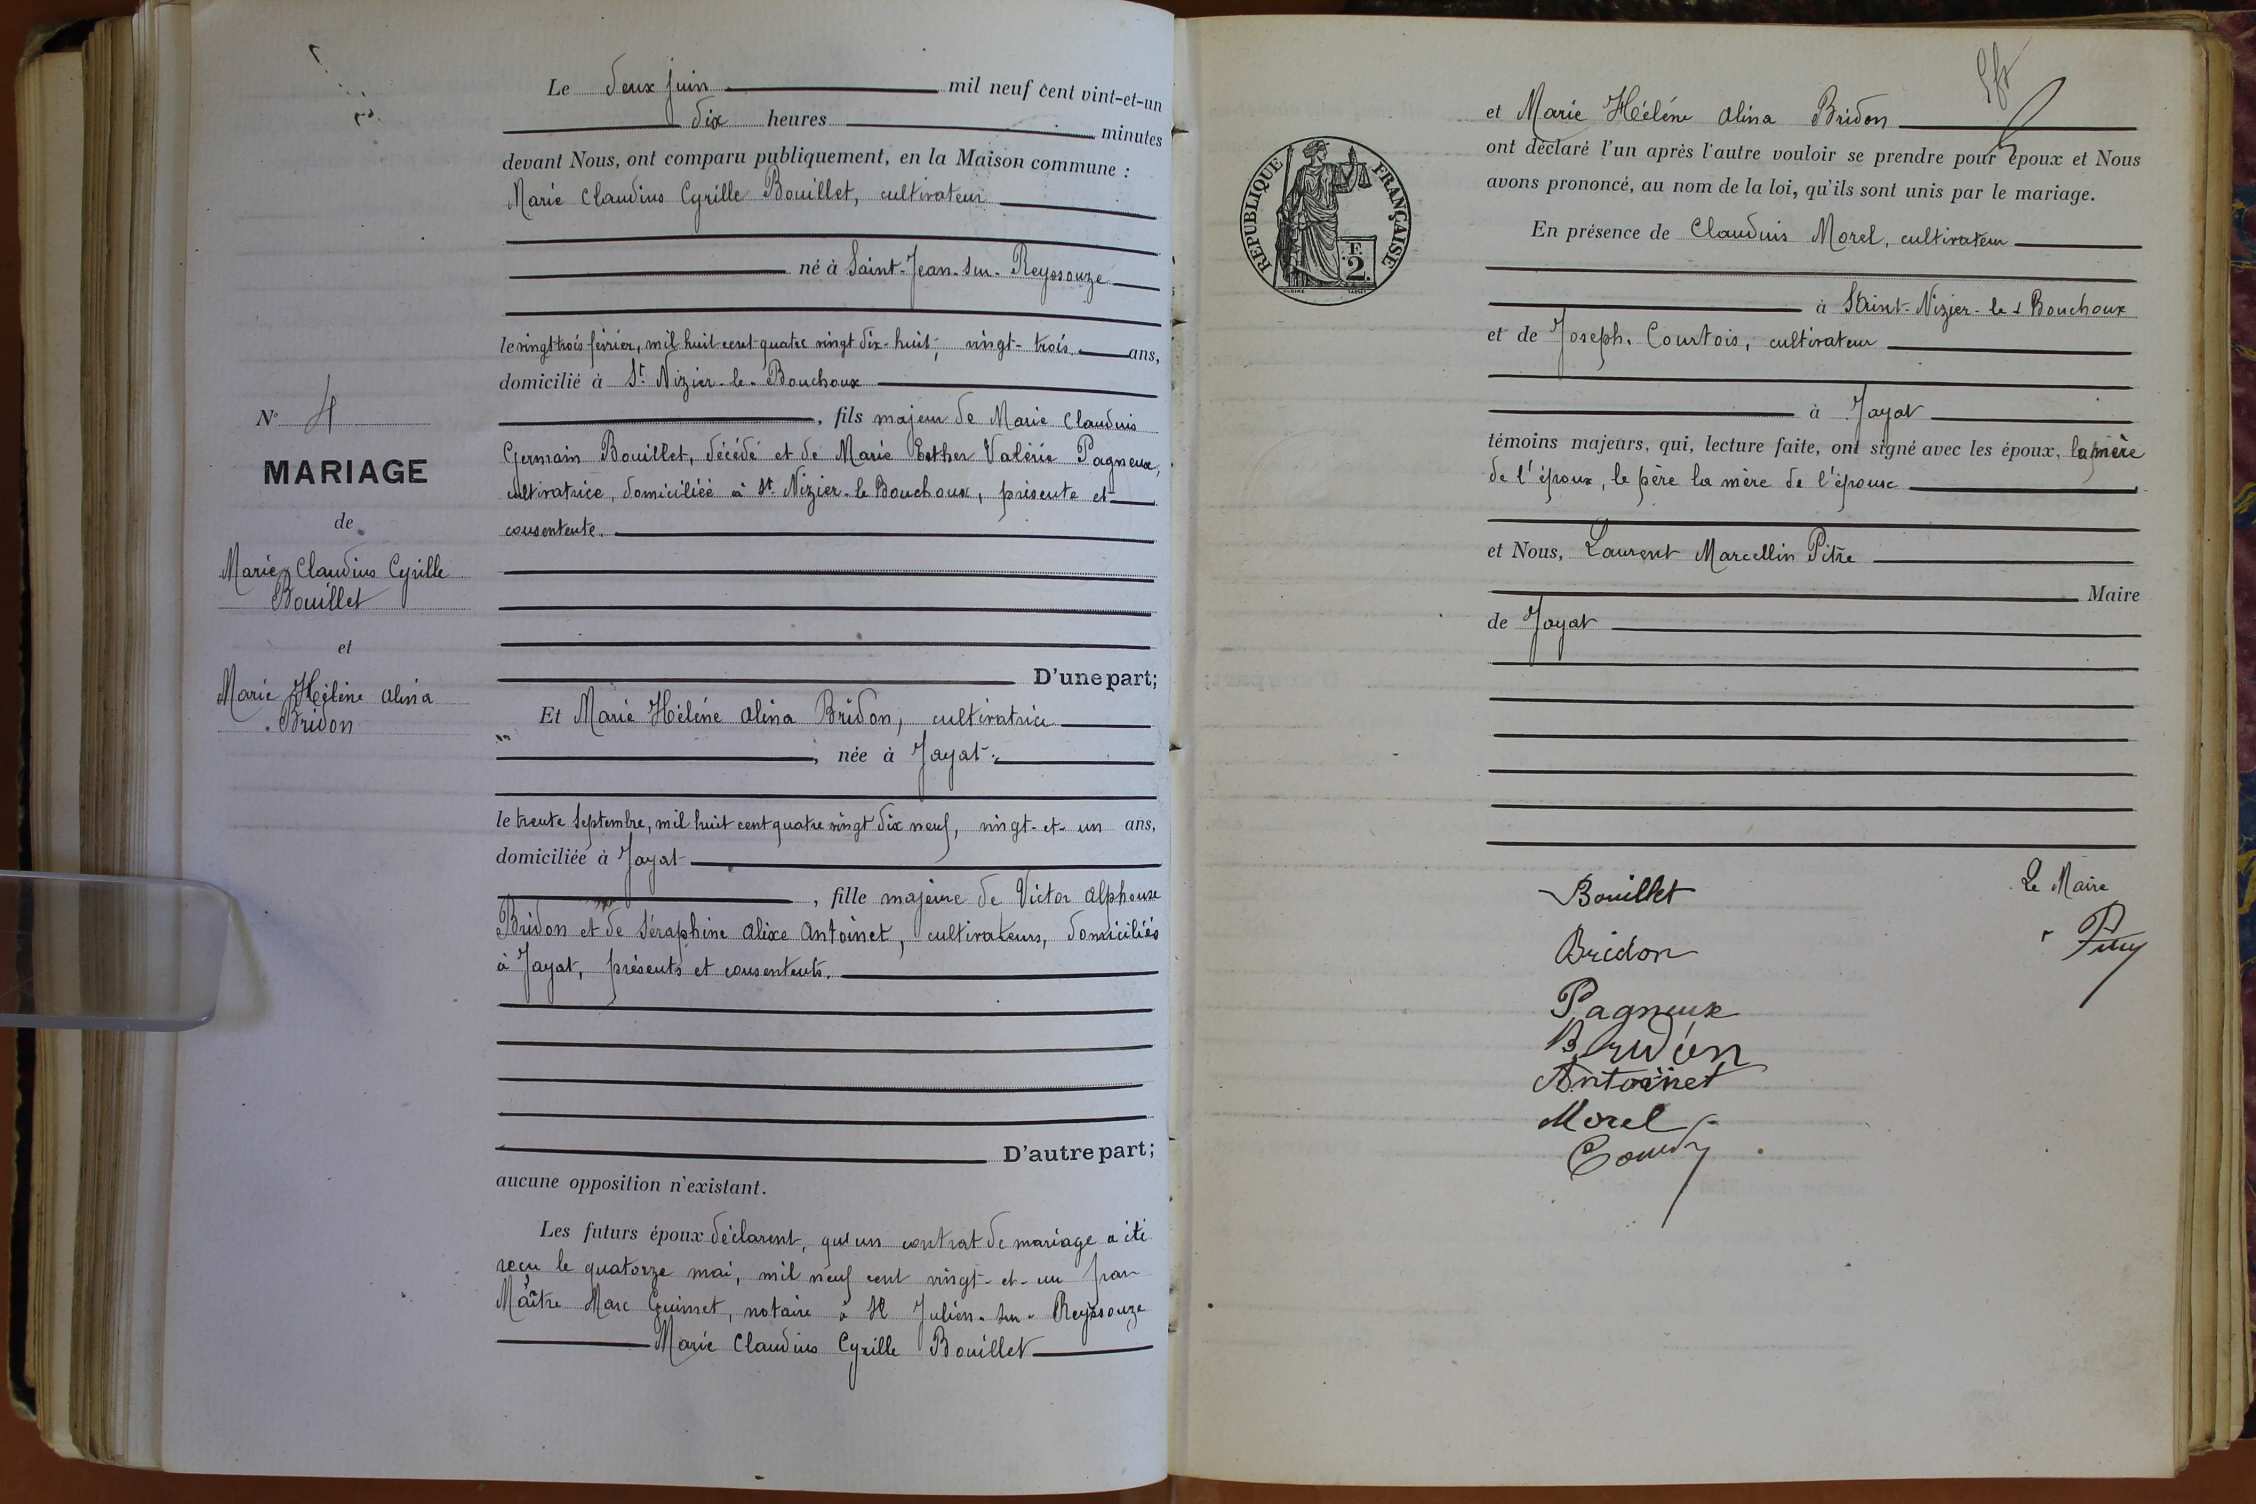 N° 4
MARIAGE
de
Marie Claudius Cyrille
Bouillet
et
Marie Hélène Alina
Bridon
Le deux juin mil neuf cent vint-et-un
dix heures minutes
devant Nous, ont comparu publiquement, en la Maison commune :
Marie Claudius Cyrille Bouillet, cultivateur
né à Saint-Jean-sur-Reyssouze
le vingt trois février, mil huit cent quatre vingt dix-huit, vingt-trois ans,
domicilié à St Nizier-le-Bouchoux
, fils majeur de Marie Claudius
Germain Bouillet, décédé et de Marie Esther Valérie Pagneux,
cultivatrice, domiciliée à St Nizier-le-Bouchoux, présente et
consentente.
D'une part;
Et Marie Hélène Alina Bridon, cultivatrice
, née à Jayat
le trente Septembre, mil huit cent quatre vingt dix neuf, vingt-et-un ans,
domiciliée à Jayat
, fille majeure de Victor Alphonse
Bridon et de Séraphine Alixe Antoinet, cultivateurs, domiciliés
à Jayat, présents et consentents.
D'autre part;
aucune opposition n'existant.
Les futurs époux déclarent, qu'un contrat de mariage a été
reçu le quatorze mai, mil neuf cent vingt-et-un par
Maître Marc Guimet, notaire à St Julien-sur-Reyssouze
Marie Claudius Cyrille Bouillet
RÉPUBLIQUE FRANÇAISE
F.
2
et Marie Hélène Alina Bridon
ont déclaré l'un après l'autre vouloir se prendre pour époux et Nous
avons prononcé, au nom de la loi, qu'ils sont unis par le mariage.
En présence de Claudius Morel, cultivateur
à Saint-Nizier-le-Bouchoux
et de Joseph Courtois, cultivateur
à Jayat
témoins majeurs, qui, lecture faite, ont signé avec les époux, la mère
de l'époux, le père la mère de l'épouse
et Nous, Laurent Marcellin Pitre
Maire
de Jayat
Bouillet
Le Maire
Bridon
Pagneux
Bridon
Antoinet
Morel